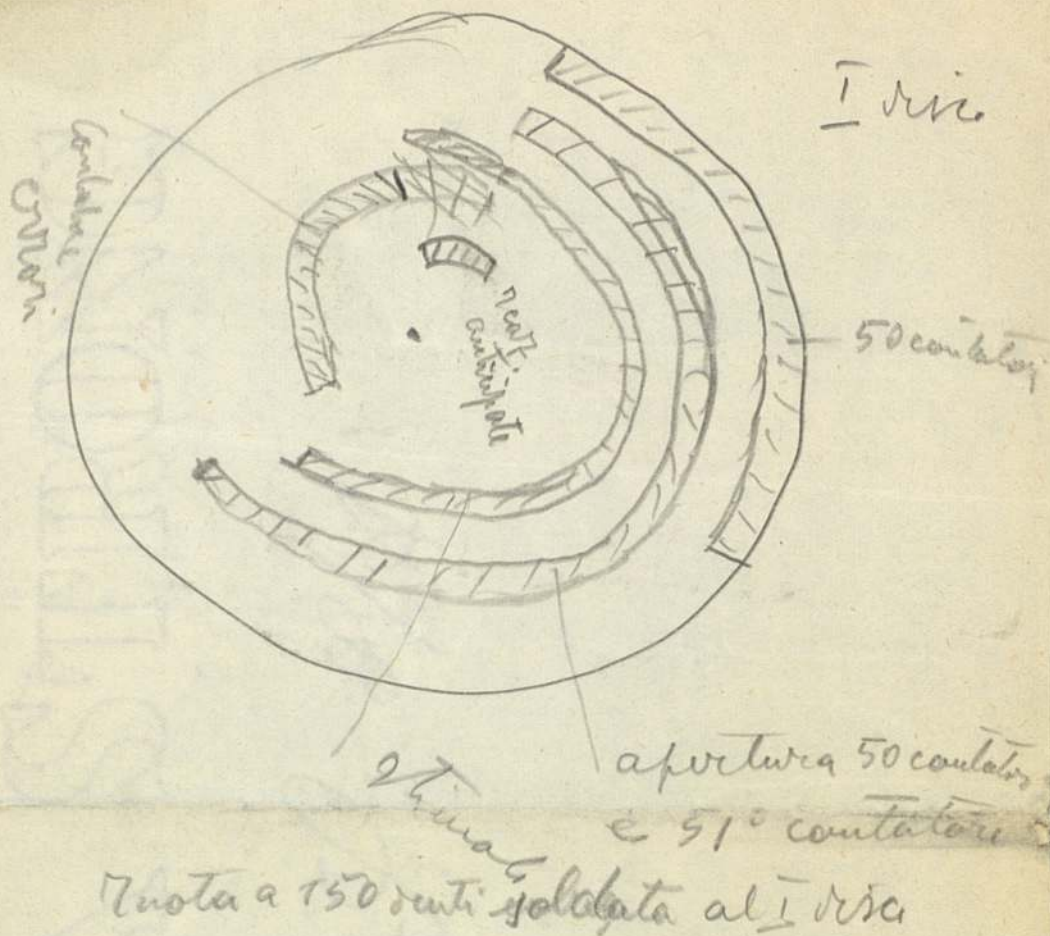 I disco
contatore
errori
reaz.
anticipate
50 contatori
stimoli
apertura 50 contatori
e 51° contatore
Ruota a 150 denti saldata al I disco